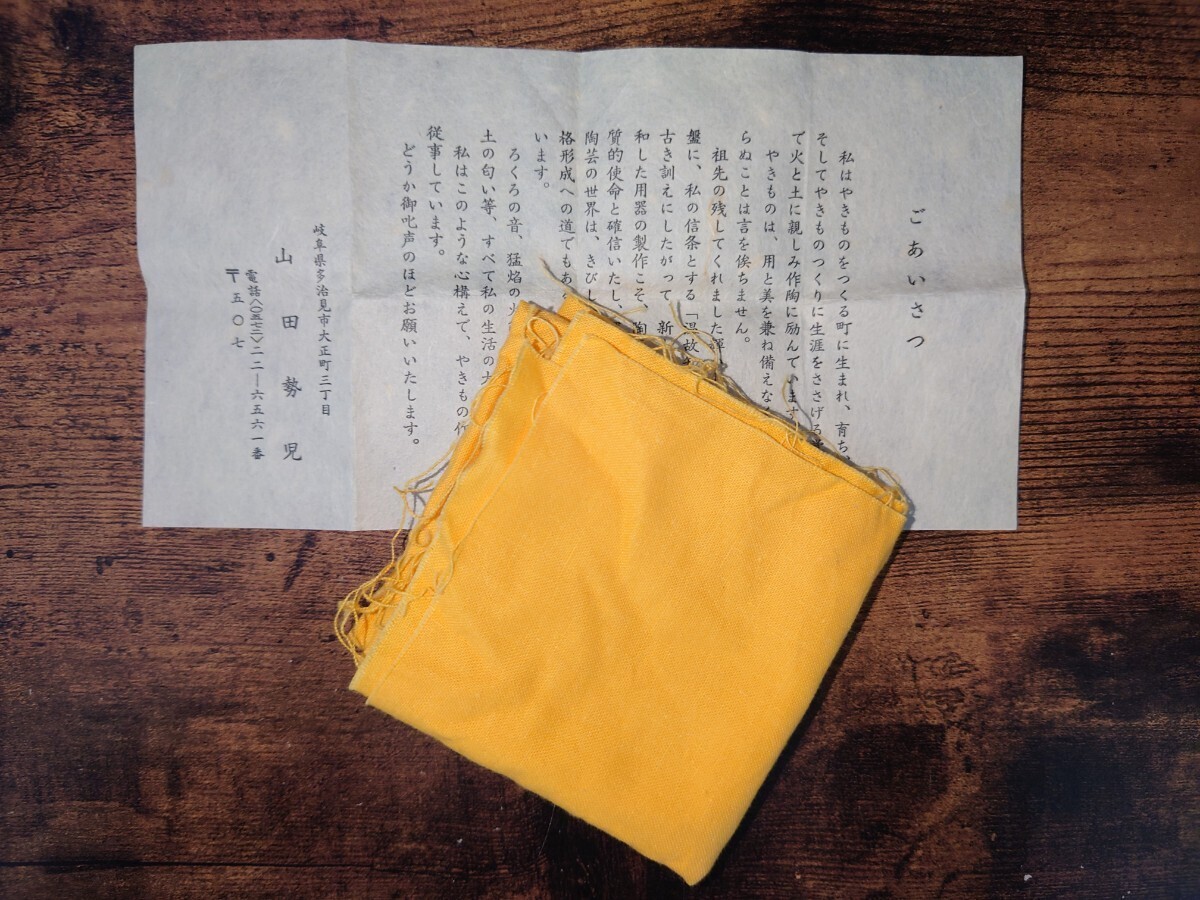 ごあいさつ
私はやきものをつくる町に生まれ、育ち、
そしてやきものつくりに生涯をささげる
で火と土に親しみ作陶に励んでいます
やきものは、用と美を兼ね備えな
らぬことは言を俟ちません。
祖先の残してくれました
盤に、私の信条とする「温故
古き訓えにしたがって、新
和した用器の製作こそ、陶
質的使命と確信いたし、
陶芸の世界は、きびし
格形成への道でもあ
います。
ろくろの音、猛焰の
土の匂い等、すべて私の生活の大
私はこのような心構えで、やきもの作
従事しています。
どうか御叱声のほどお願いいたします。
岐阜県多治見市大正町三丁目
山田勢児
電話〈〇五七二〉二二―六五六一番
〒五〇七